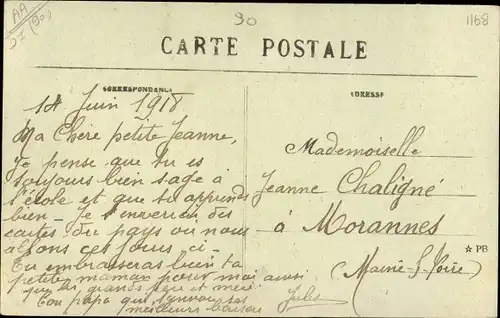 AA
(90)
90
1168
CARTE POSTALE
CORRESPONDANCE
ADRESSE
14 Juin 1918
Ma Chère petite Jeanne,
Je pense que tu es
toujours bien sage à
l'école et que tu apprends
bien - Je t'enverrai des
cartes du pays ou nous
allons ces jours, ci -
Tu embrasseras bien ta
petite maman pour moi ainsi
que tes grands père et mère.
Ton papa qui t'envoi ses
meilleurs baisers
Jules
Mademoiselle
Jeanne Chaligné
à Morannes
(Maine-&-Loire)
★ PB